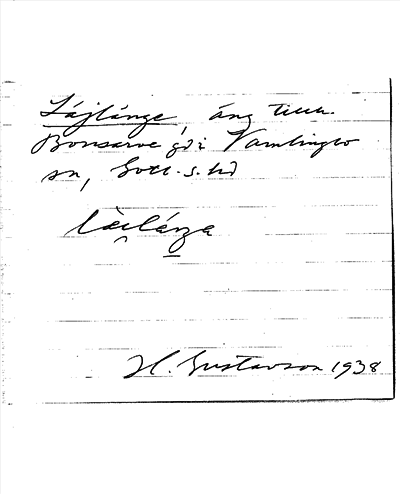 Lájlánge, äng till
Bonsarve gd i Vamlingbo
sn, Gotl. s. hd
H. Gustavson 1938